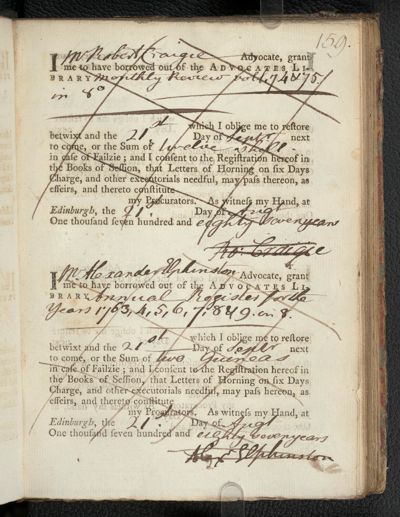 159.
I Mr Robert Craigie Advocate, grant
me to have borrowed out of the ADVOCATES LI-
BRARY Monthly Review vol. 74 & 75
in 8o
betwixt and the 21st which I oblige me to restore
Day of Septr next
to come, or the Sum of twelve shill:
in case of Failzie; and I consent to the Registration hereof in
the Books of Session, that Letters of Horning on six Days
Charge, and other executorials needful, may pass thereon, as
effeirs, and thereto constitute
my Procurators. As witness my Hand, at
Edinburgh, the 21st Day of Augt
One thousand seven hundred and eighty seven years
Ro: Craigie
I Mr Alexander Elphinston Advocate, grant
me to have borrowed out of the ADVOCATES LI-
BRARY Annual Register for the
Years 1763, 4, 5, 6, 7, 8 & 9. in 8o
which I oblige me to restore
betwixt and the 21st Day of Septr next
to come, or the Sum of two Guineas
in case of Failzie; and I consent to the Registration hereof in
the Books of Session, that Letters of Horning on six Days
Charge, and other executorials needful, may pass hereon, as
effeirs, and thereto constitute
my Procurators. As witness my Hand, at
Edinburgh, the 21st Day of Augt
One thousand seven hundred and eighty seven years
Alexr Elphinston